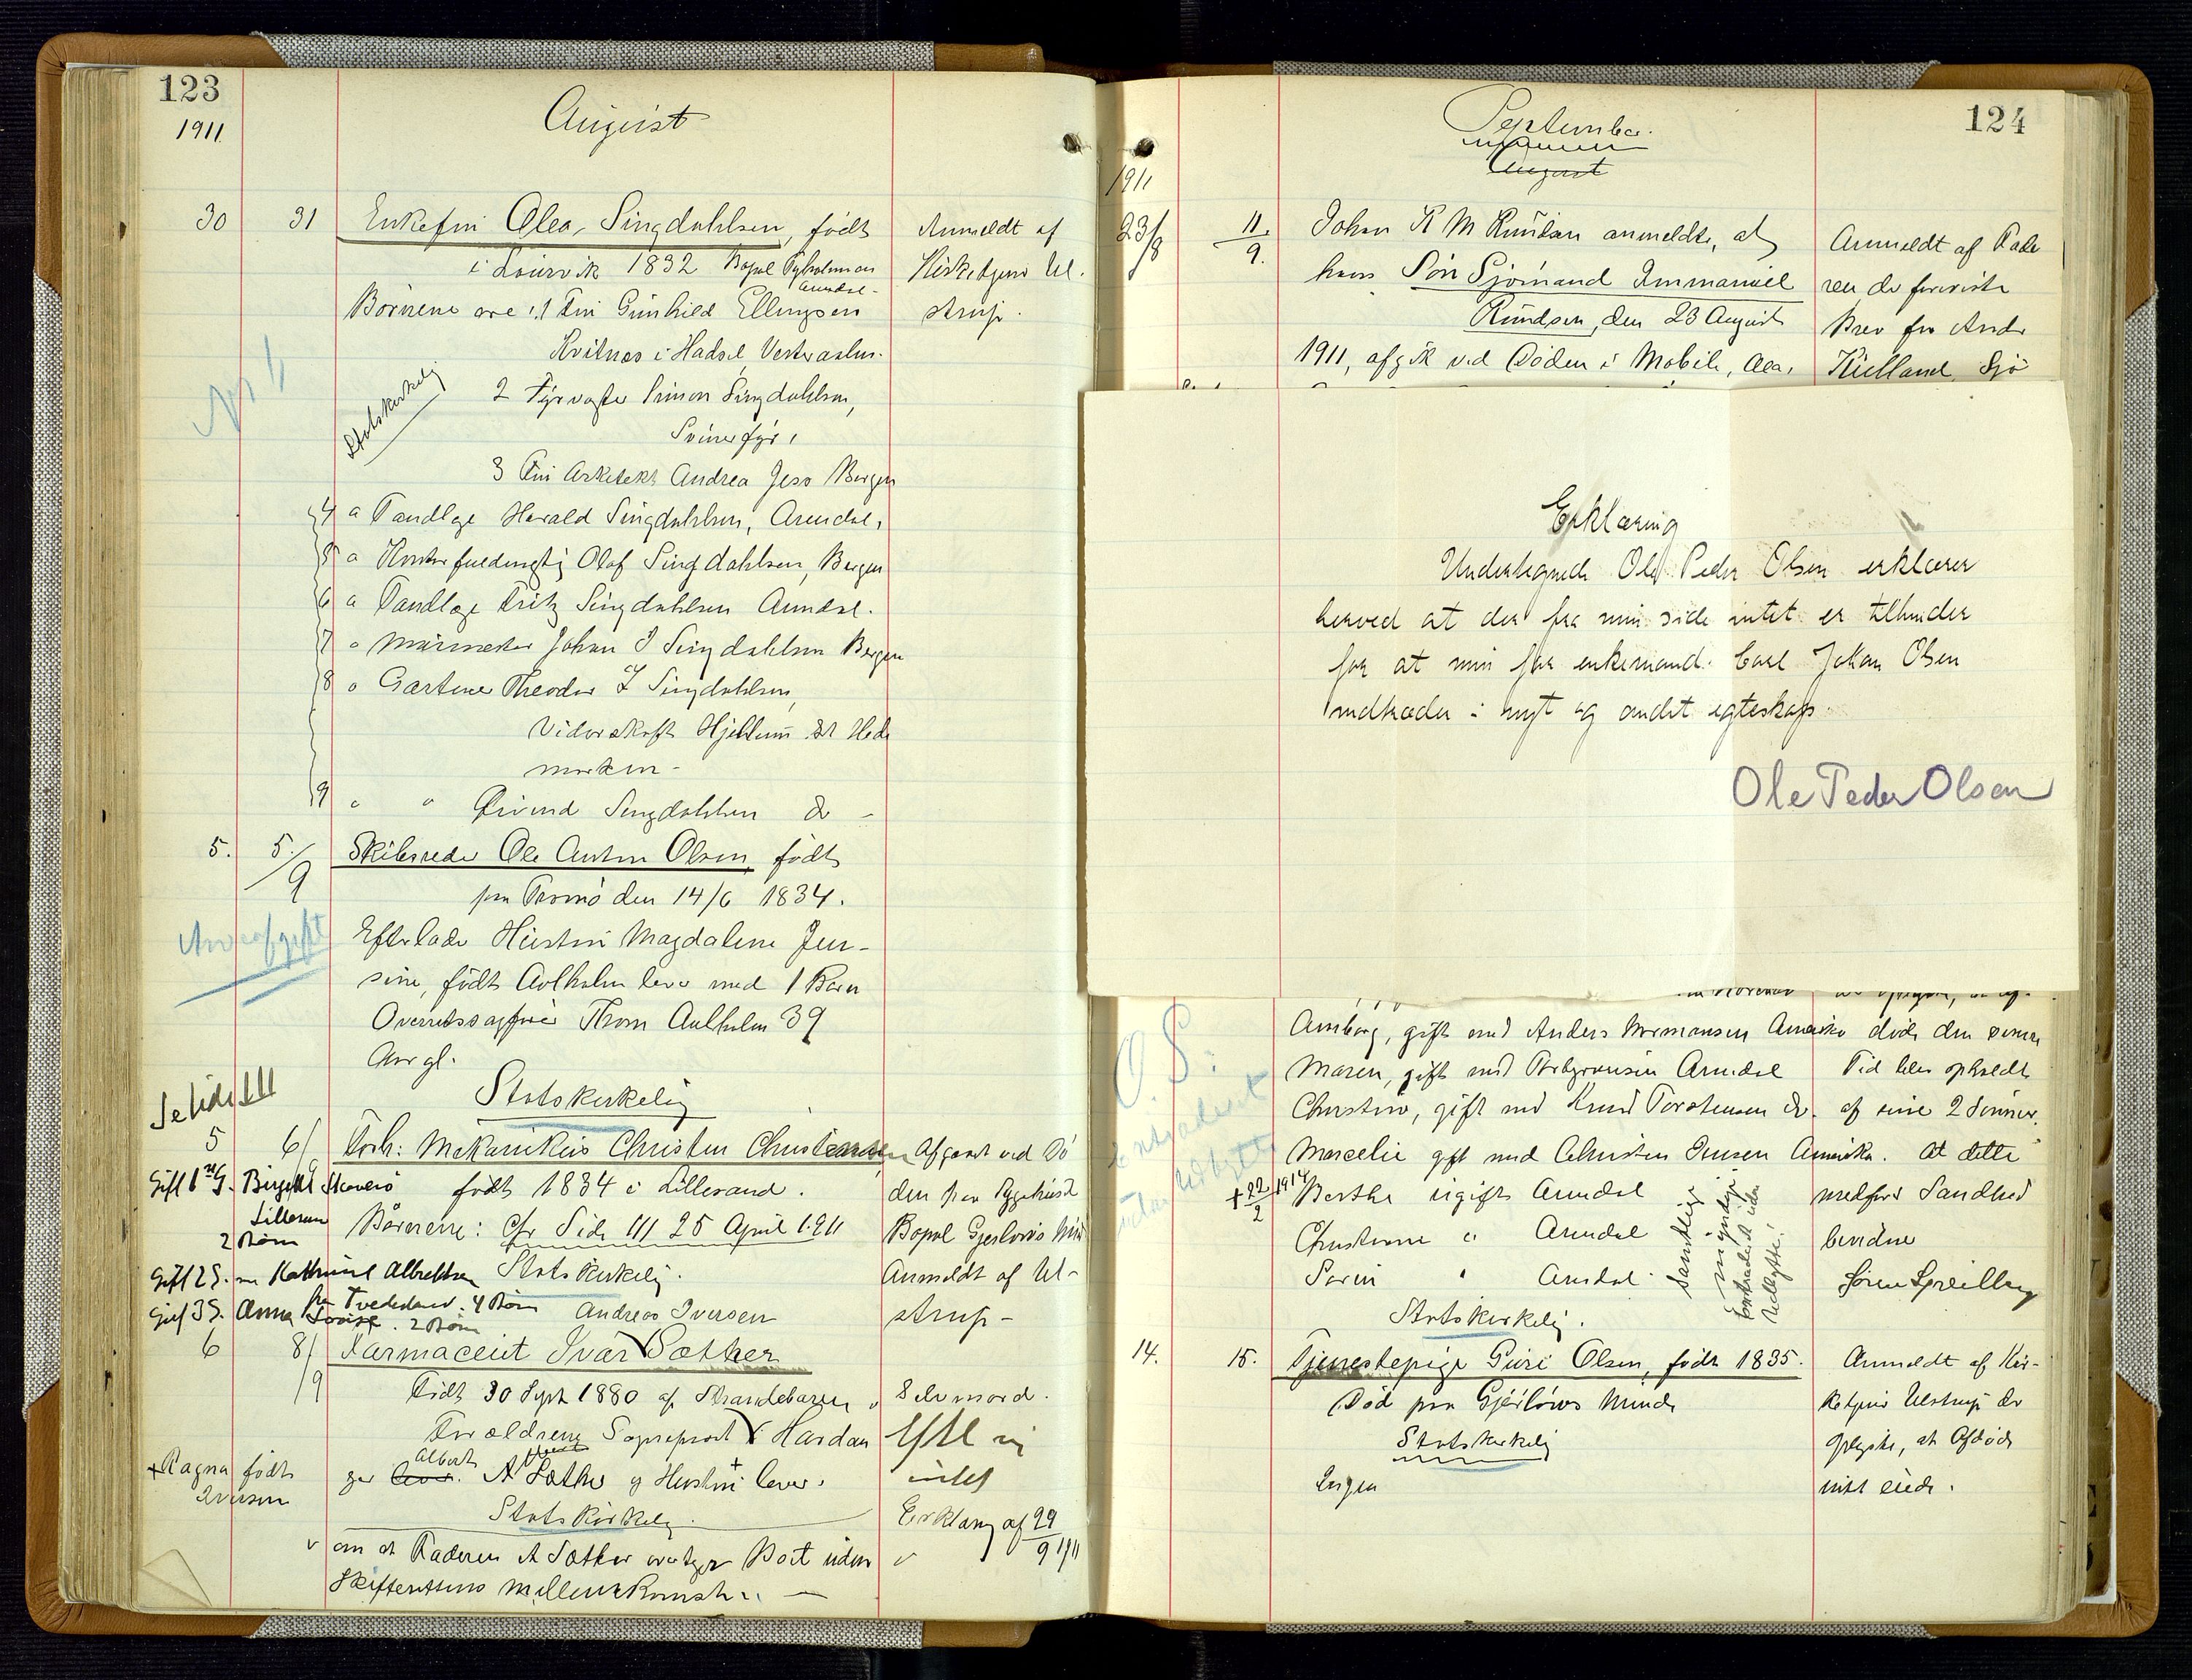 123
1911
August
30 31 Enkefru Olea Singdahlsen, født
i Laurvik 1832 Bopæl Tyholmen
Arendal
Anmeldt af
Kirketjener Ul-
strup.
Børnene are: 1 Fru Gunhild Ellingsen
Kvitnes i Hadsel, Vesteraalen.
Statskirkelig
2 Fyrvogter Simon Singdahlsen,
3 Fru Arkitekt Andrea Bergen
4 a Tandlæge Harald Singdahlsen, Arendal,
5 a Olaf Singdahlsen, Bergen
6 a Tandlæge Fritz Singdahlsen Arendal.
7 o Murmester Johan J Singdahlsen Bergen
8 o Gartner Theodor Singdahlsen,
Hjellum St Hede
marken -
9 " " Øivind Singdahlsen do -
5. 5/9 Skibsreder Ole Anton Olsen, født
paa Tromø den 14/6 1834.
Arveafgift
Efterlader Hustru Magdalene Jen-
sine, født Aalholm lever med 1 Barn
Overretssagfører Thom Aalholm 39
Aar gl.
Statskirkelig
Se side 111
5 6/ Forh: Mekanikus Christen Christensen
født 1834 i Lillesand.
Børnene: cfr Side 111 25 April 1911
Statskirkelig.
Andreas Iversen
Afgaaet ved Dø
den paa Sygehuset
Bopæl Gjerløws Mind
Anmeldt af Ul-
strup -
Gift 1ste G. Birgitte
Lillesand
2 Børn
Gift 2 G. m Kathrine Albrektsen
fra Tvedestrand. 4 Børn
Gift 3 G. Anna Lovise. 2 Børn
6 8/9 Farmaceut Ivar Sæther
Født 30 Sept 1880 af Strandebarm
Forældrene Sogneprest i Hardan
ger Albert A Sæther og Hustru + lever.
Statskirkelig.
Selvmord.
intet
Erklæring af 29/9 1911
+ Ragna født
Iversen
v om at Faderen A Sæther overtager Boet uden
Skifterettens Mellemkomst. —
124
September.
August
1911
23/8 11/9. Johan K M Knudsen anmeldte, at
hans Søn Sjømand Immanuel
Knudsen, den 23 August
1911, afgik ved Døden i Mobile, Ala,
Anmeldt af Fade
ren der foreviste
Brev fra Andr
Kielland, Sjø
Erklæring
Undertegnede Ole Peder Olsen erklærer
herved at der fra min side intet er tilhinder
for at min far enkemand Carl Johan Olsen
indtræder i nyt og andet egteskap.
Ole Peder Olsen
O. S:
Extraderet
uden
Udbytte
Amborg, gift med Anders Normansen Amerika
Maren, gift med Torbjørnsen Arendal
Christine, gift med Knud Torstensen do.
Marcelie gift med Christen Jensen Amerika.
+ 22/2 1914 Berthe ugift Arendal
Christiane " Arendal
Sorin " Arendal
Samtlige
myndige
Extraderet uden
Udbytte!
Statskirkelig.
døde den senere
Tid blev opholdt
af sine 2 Sønner.
At dette
medfører Sandhed
bevidner
14. 15. Tjenestepige Guri Olsen, født 1835.
Død paa Gjerløws Minde
Statskirkelig
Ingen
Anmeldt af Kir-
ketjener Ulstrup der
oplyste, at Afdøde
intet eiede.